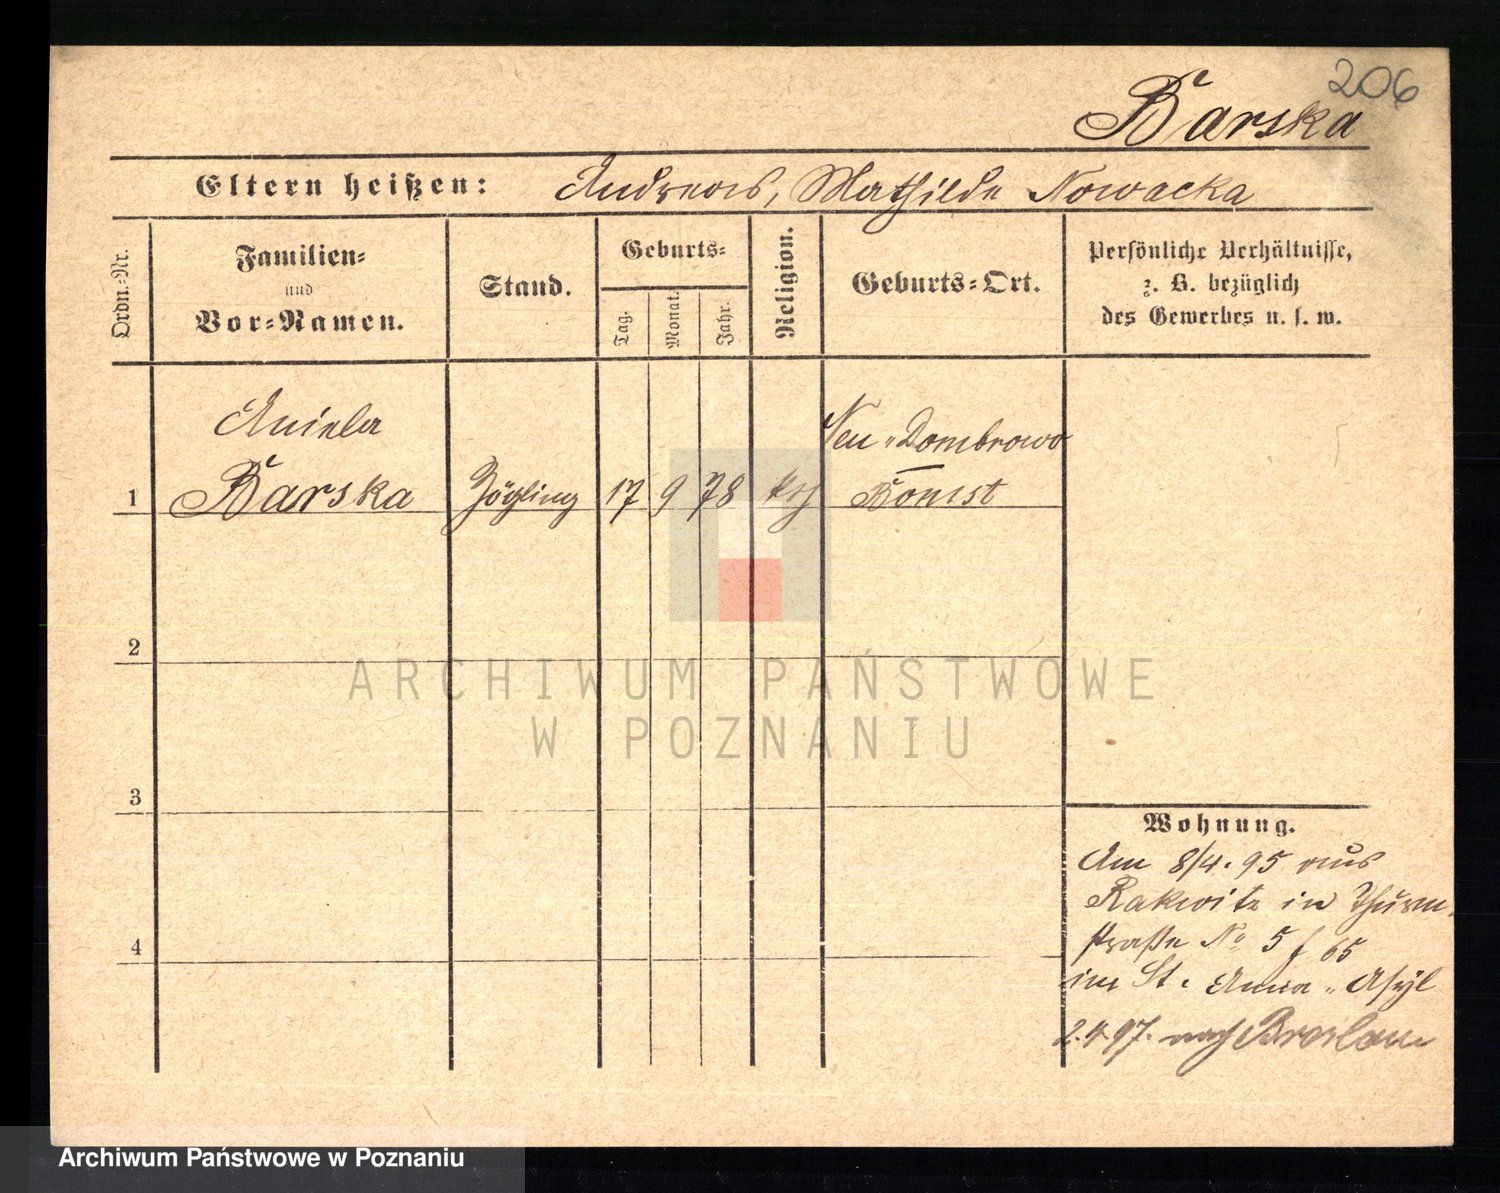 206
Barska
Eltern heißen: Andreas, Mathilde Nowacka
Ordn.-Nr.
Familien-
und
Vor-Namen.
Stand.
Geburts-
Tag.
Monat.
Jahr.
Religion.
Geburts-Ort.
Persönliche Verhältnisse,
z. B. bezüglich
des Gewerbes u. s. w.
Aniela
Neu-Dombrowo
1 Barska Zögling 17 9 78 kth Bomst
2
3
4
Wohnung.
Am 8/4.95 aus
Rakwitz in Thurm-
straße No 5 f 65
im St. Anna-Asyl
2.4.97. nach Breslau
ARCHIWUM PAŃSTWOWE
W POZNANIU
Archiwum Państwowe w Poznaniu